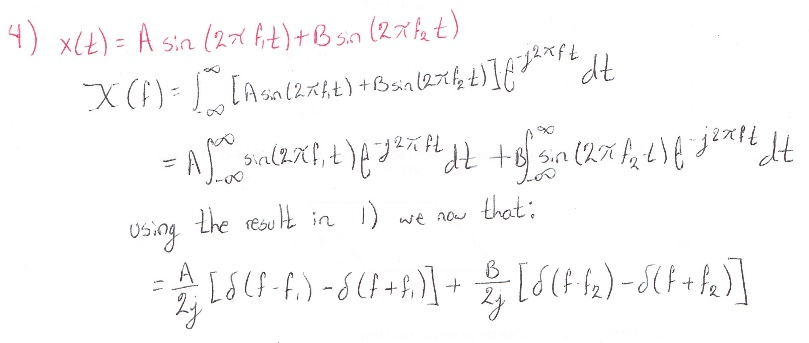 4) x(t) = A sin (2π f₁t) + B sin (2π f₂ t)
X(f) = ∫_{-∞}^{∞} [A sin(2πf₁t) + B sin(2πf₂t)] e^{-j2πft} dt
= A∫_{-∞}^{∞} sin(2πf₁t) e^{-j2πft} dt + B∫_{-∞}^{∞} sin(2πf₂t) e^{-j2πft} dt
using the result in 1) we now that:
= A/2j [δ(f-f₁) - δ(f+f₁)] + B/2j [δ(f-f₂) - δ(f+f₂)]